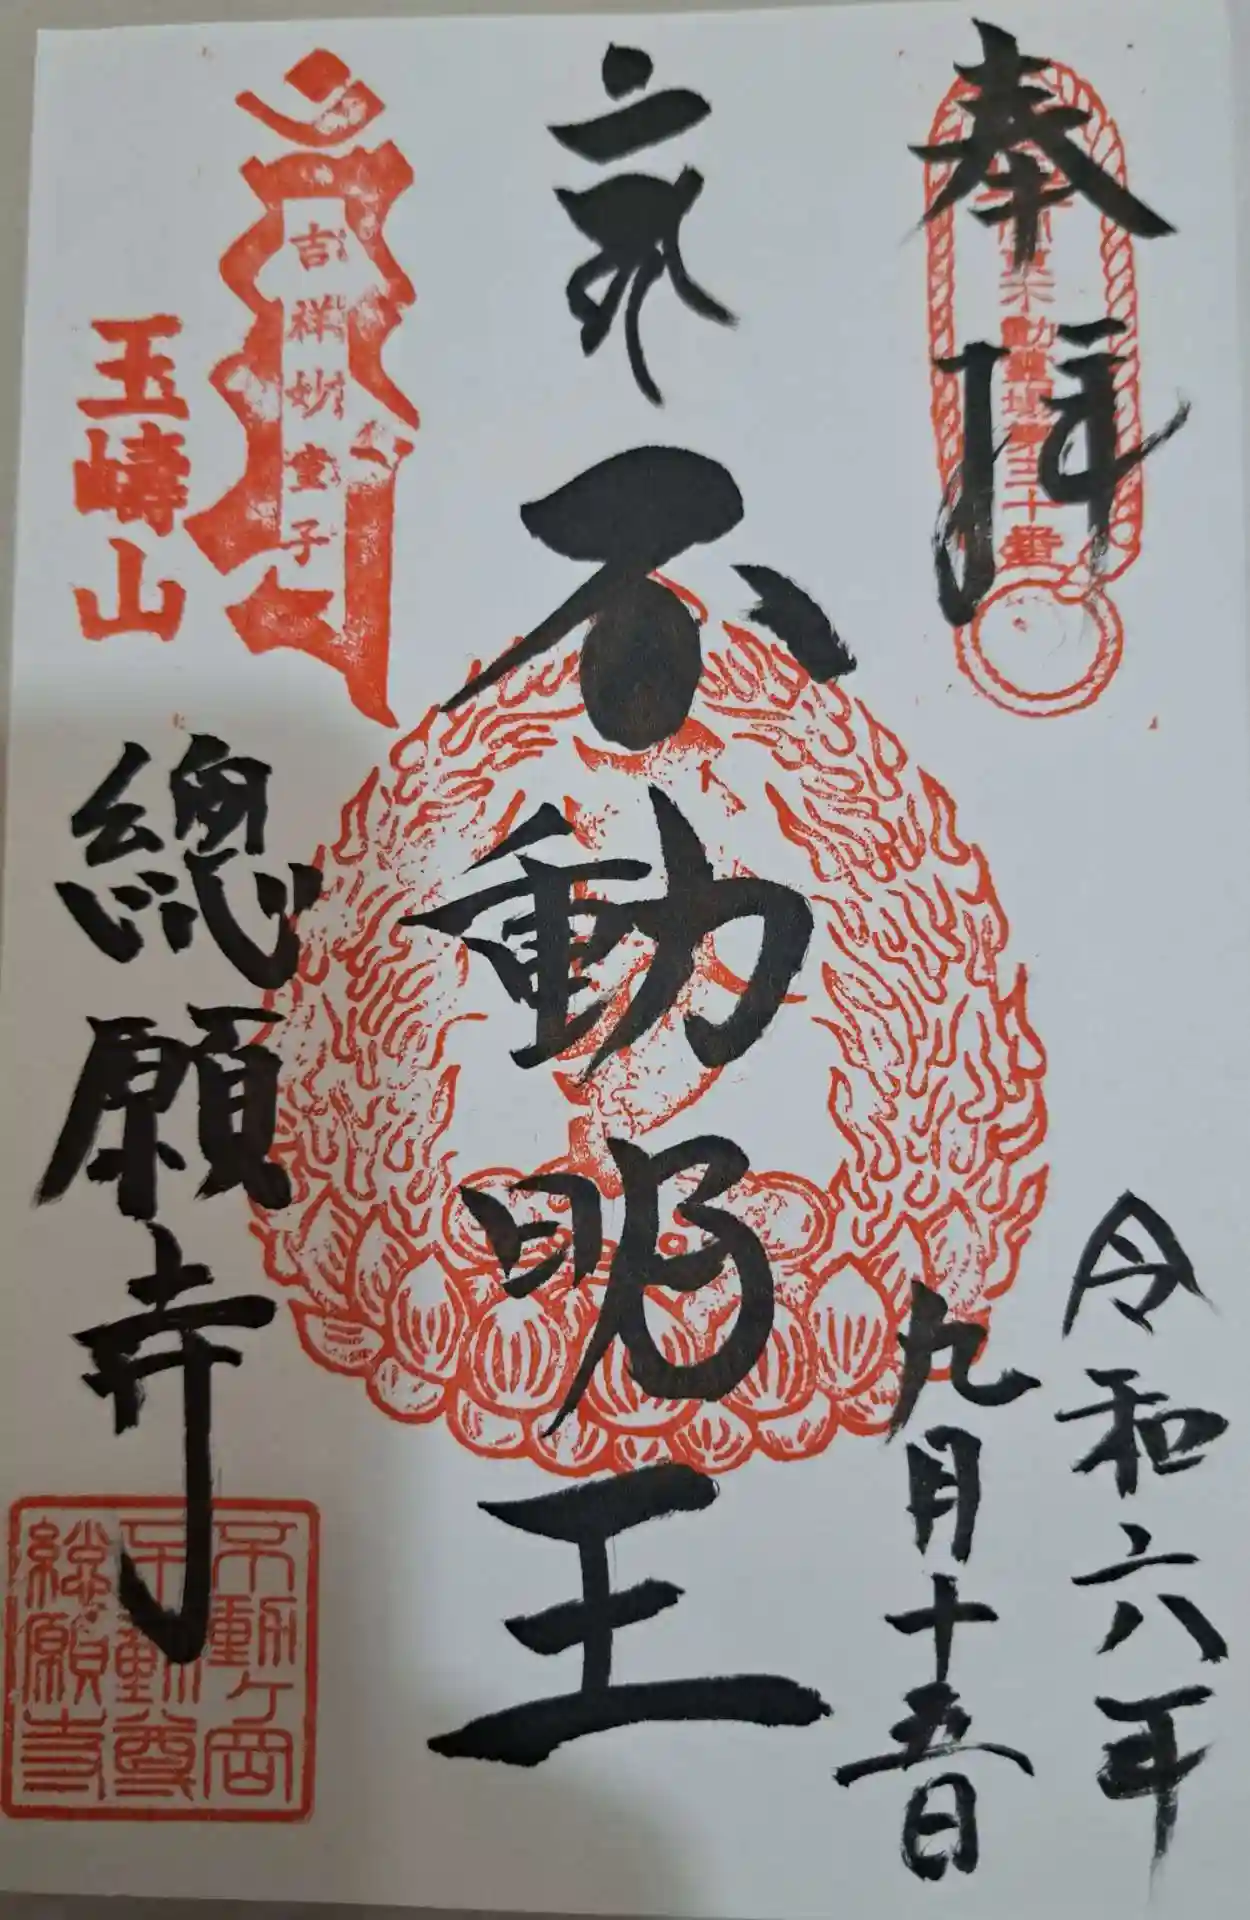 奉拝
不動霊場第三十番
令和六年
九月十五日
不動明王
吉祥妙童子
玉嶹山
總願寺
不動ヶ岡
不動尊
総願寺